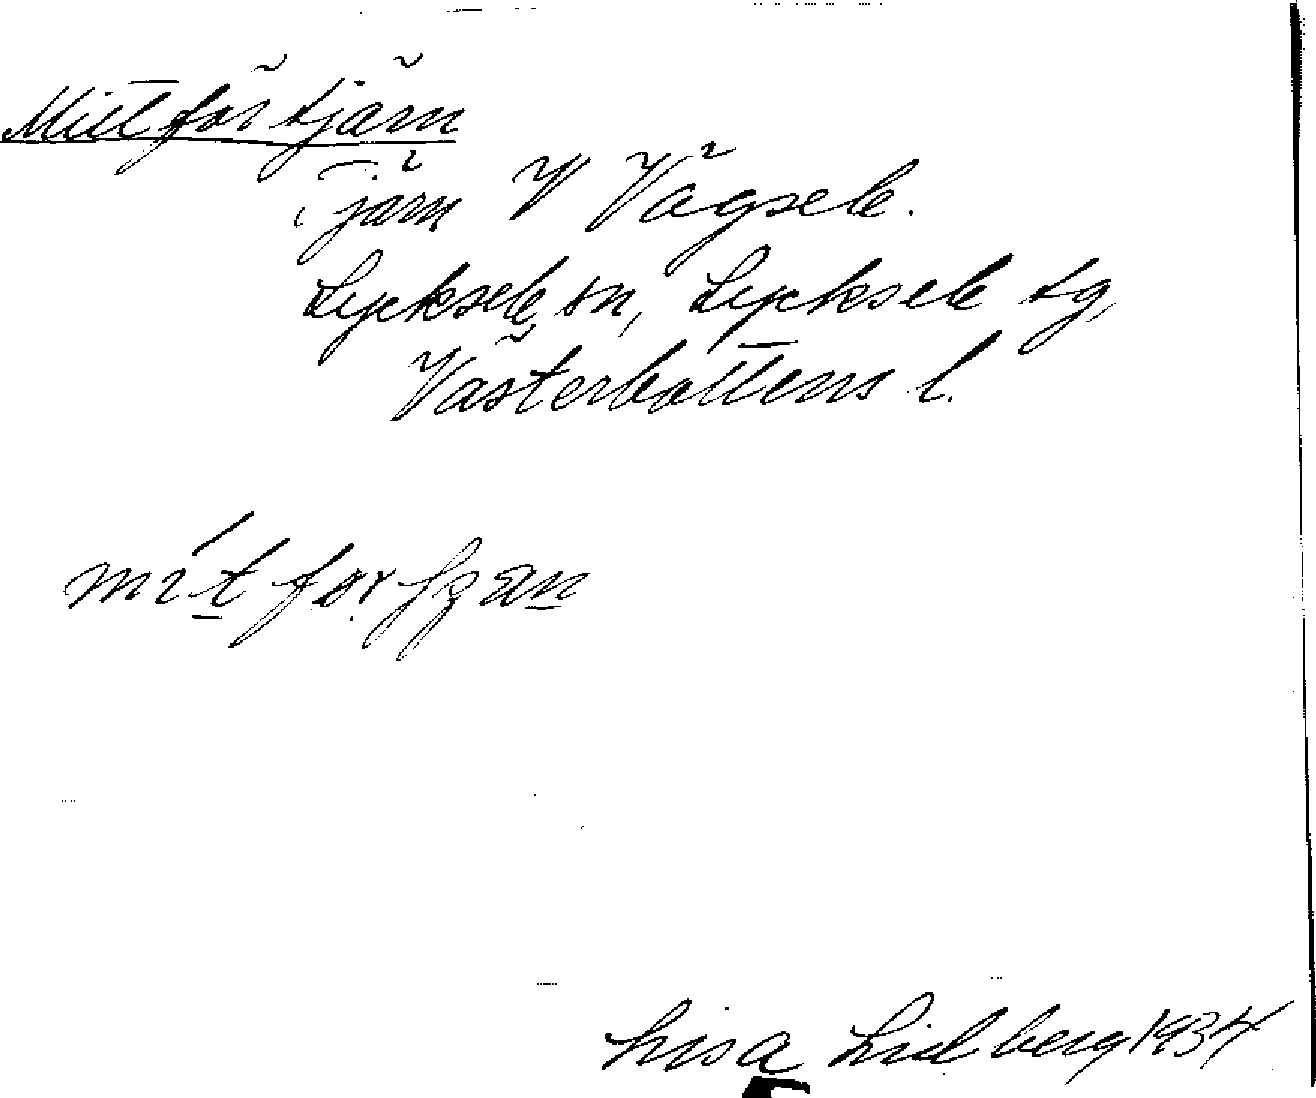 Mittförtjärn
Tjärn V Vägsele.
Lycksele sn, Lycksele tg,
Västerbottens l.
Lisa Lidberg 1934